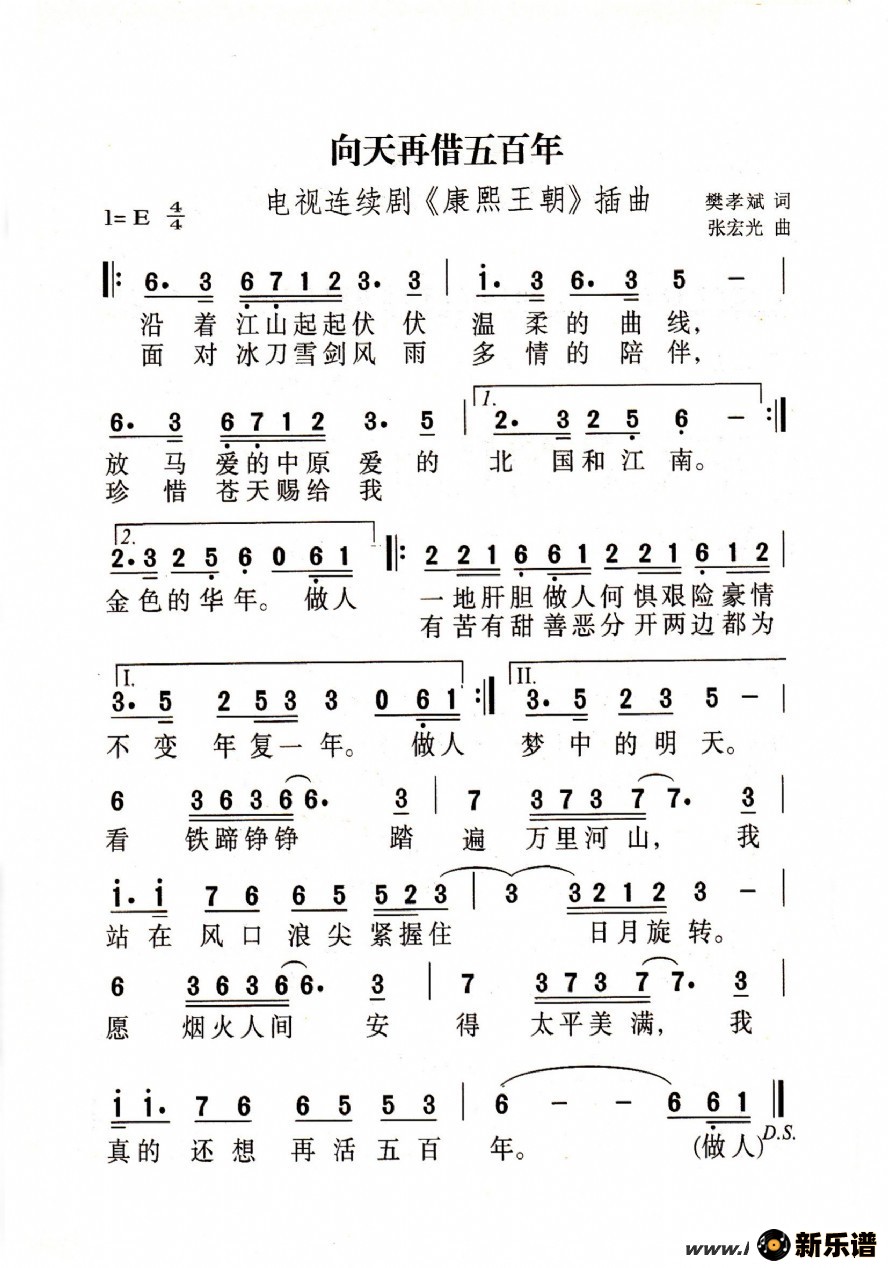 向天再借五百年
电视连续剧《康熙王朝》插曲
樊孝斌 词
1= E 4/4
张宏光 曲
6. 3 6 7 1 2 3. 3 | i. 3 6. 3 5 – |
沿着江山起起伏伏 温柔的曲线,
面对冰刀雪剑风雨 多情的陪伴,
1.
6. 3 6 7 1 2 3. 5 | 2. 3 2 5 6 – :||
放马爱的中原爱的 北国和江南。
珍惜苍天赐给我
2.
2. 3 2 5 6 0 6 1 ||: 2 2 1 6 6 1 2 2 1 6 1 2 |
金色的华年。做人 一地肝胆做人何惧艰险豪情
有苦有甜善恶分开两边都为
I. II.
3. 5 2 5 3 3 0 6 1 :|| 3. 5 2 3 5 – |
不变年复一年。做人 梦中的明天。
6 3 6 3 6 6. 3 | 7 3 7 3 7 7. 3 |
看 铁蹄铮铮 踏遍 万里河山, 我
i. i 7 6 6 5 5 2 3 | 3 3 2 1 2 3 – |
站在风口浪尖紧握住 日月旋转。
6 3 6 3 6 6. 3 | 7 3 7 3 7 7. 3 |
愿 烟火人间 安得 太平美满, 我
i i. 7 6 6 5 5 3 | 6 – – 6 6 1 ||
真的还想再活五百 年。 (做人)
D.S.
www.
新乐谱